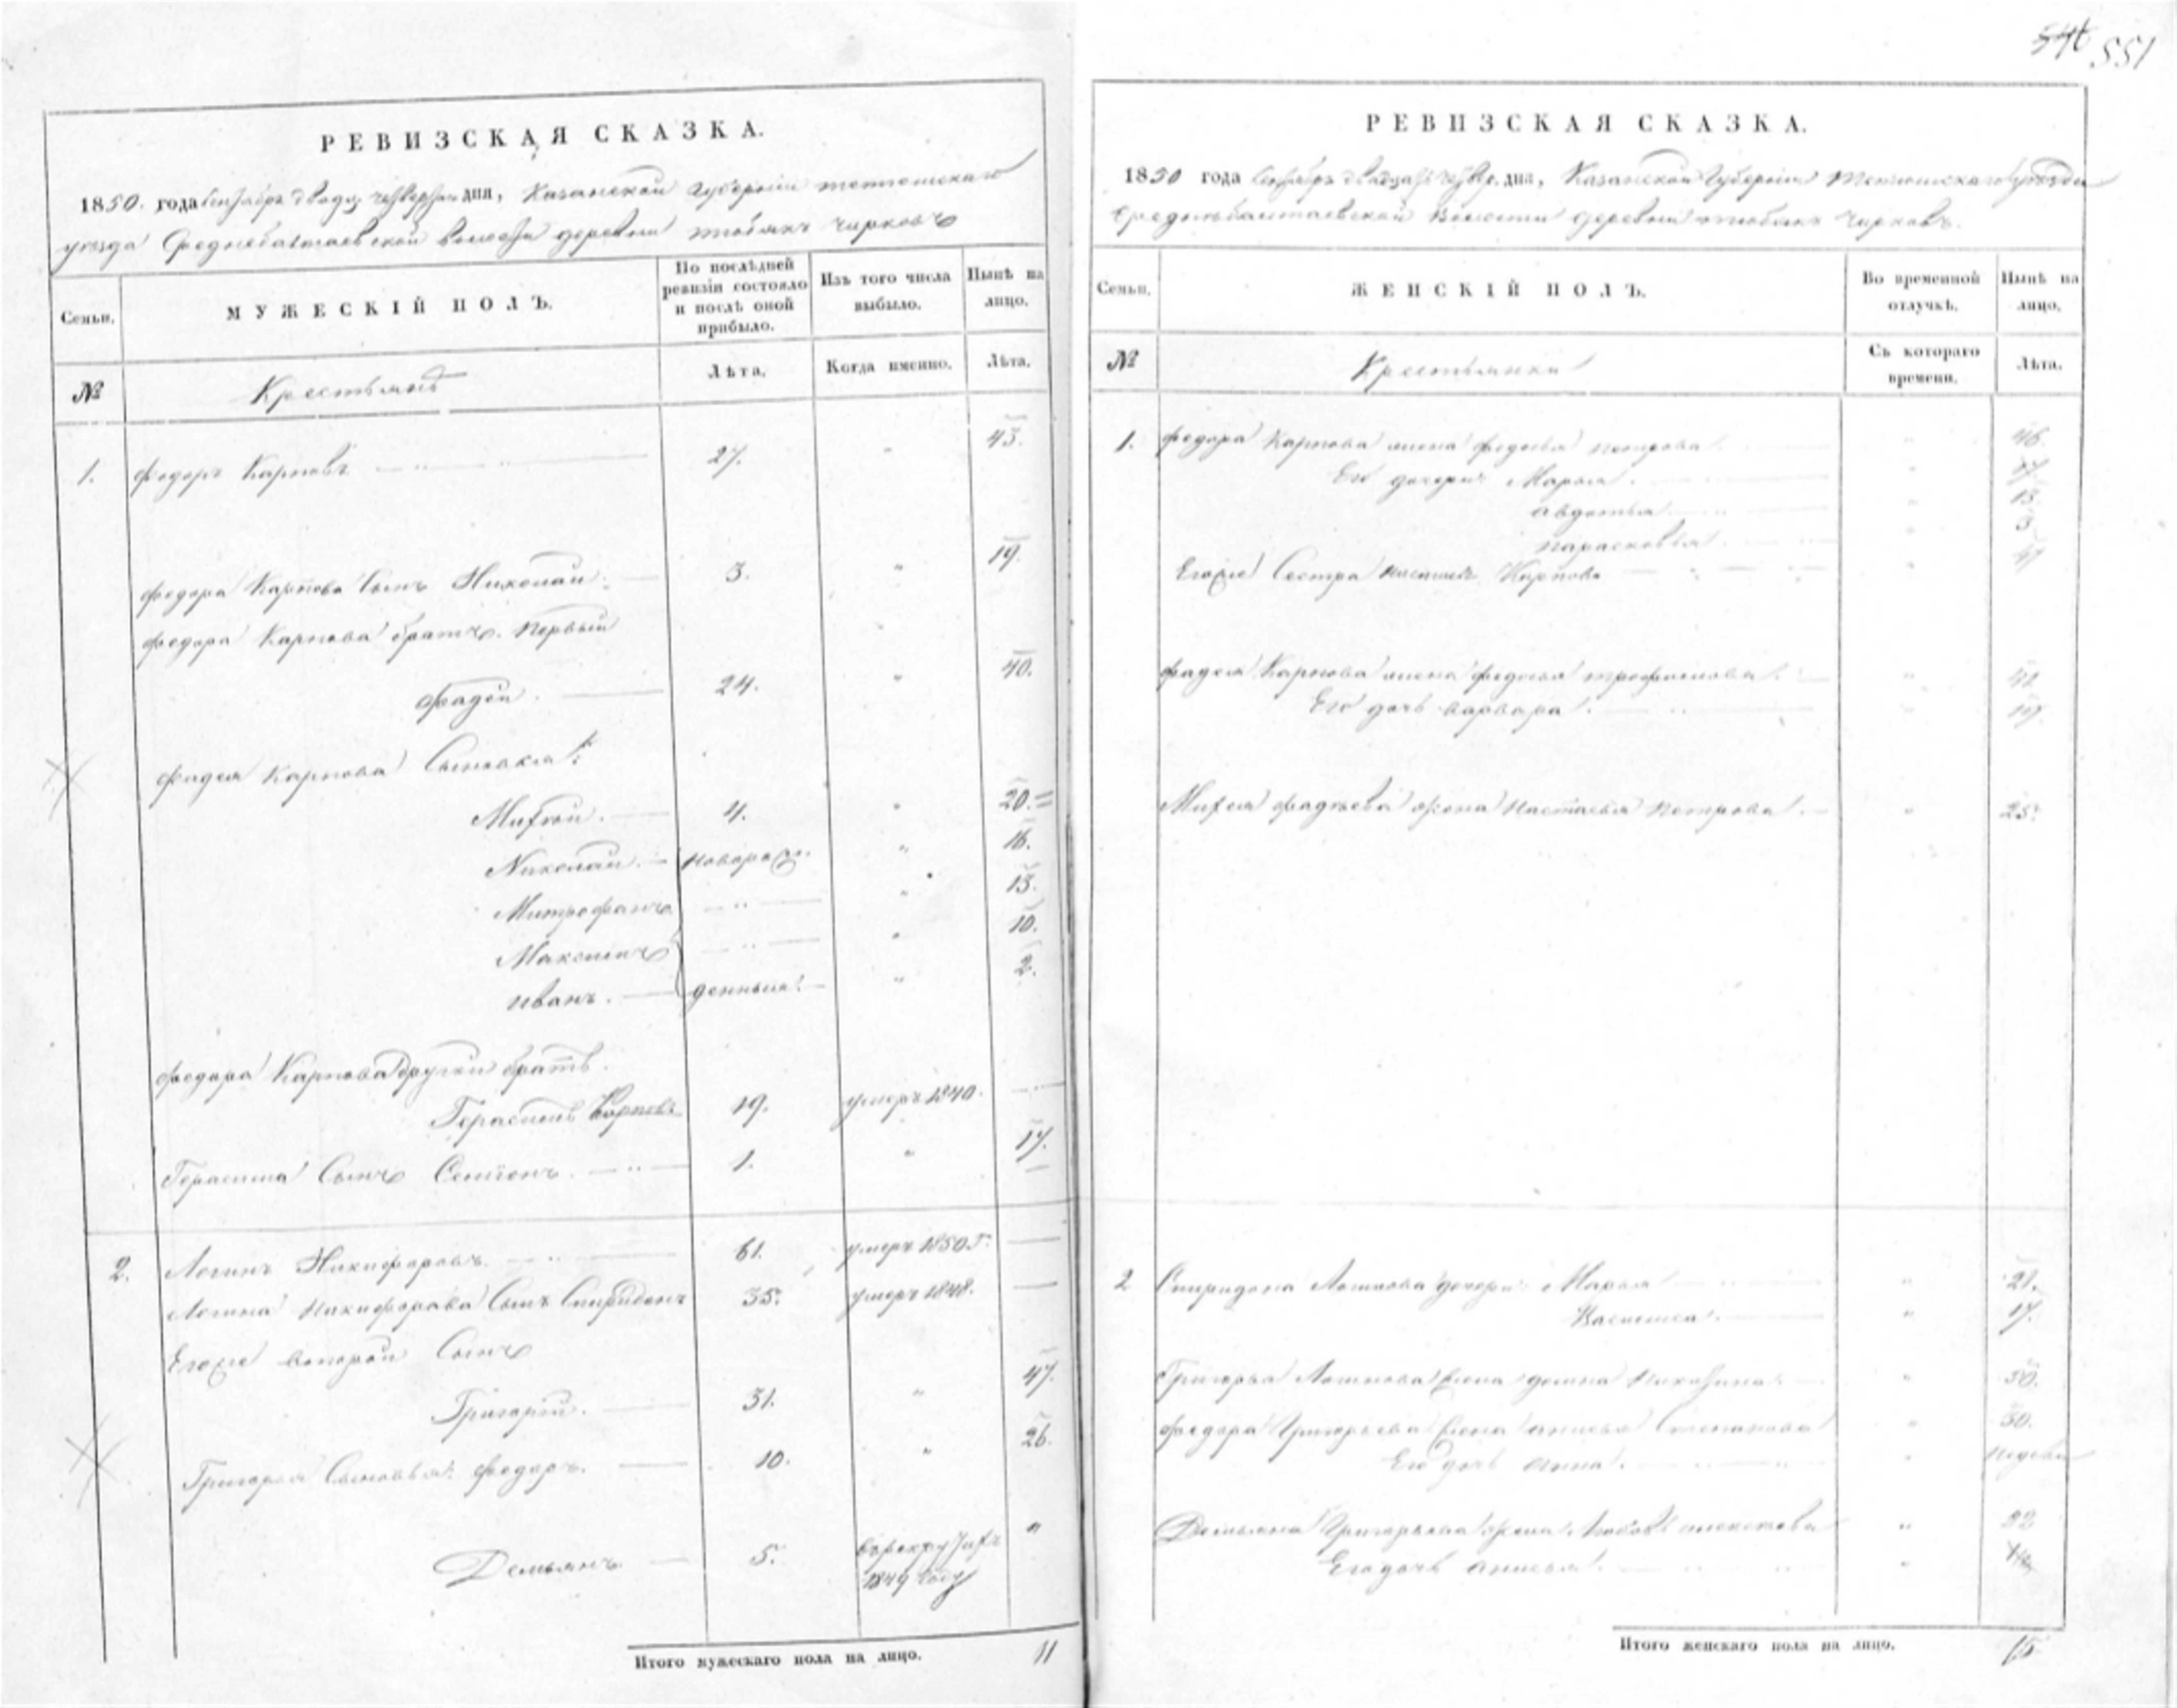 546 551
РЕВИЗСКАЯ СКАЗКА.
1850. года Сентября двадц. четвертаго дня, Казанской Губернии тетюшскаго
уезда Среднебалтаевской волости деревни чирковъ
Семьи.
МУЖЕСКІЙ ПОЛЪ.
По послѣдней ревизіи состояло и послѣ оной прибыло.
Изъ того числа выбыло.
Нынѣ на лицо.
№
Крестьянъ
Лѣта.
Когда именно.
Лѣта.
1. Федоръ Карповъ 27. " 43.
Федора Карпова Сынъ Николай. 3. " 19.
Федора Карпова братъ. Первый
Фадей. 24. " 40.
Фадея Карпова Сыновья:
Михей. 4. " 20.
Николай. новорож " 16.
Митрофанъ " 13.
Максимъ " 10.
Иванъ. денныя. " 2.
Федора Карпова другой братъ.
Герасимъ Карповъ 19. умеръ 1840.
Герасима Сынъ Семіонъ. 1. " 17.
2. Логинъ Никифоровъ. 61. умеръ 1850 г.
Логина Никифорова Сынъ Спиридонъ 35. умеръ 1848.
Егоже второй Сынъ
Григорій. 31. " 47.
Григорья Сыновья: Федоръ. 10. " 26.
Демьянъ 5. въ рекрутахъ "
1849 году
Итого мужескаго пола на лицо. 11
РЕВИЗСКАЯ СКАЗКА.
1850 года Сентября двадцать четвер. дня, Казанской Губерніи Тетюшскаго уезда
Среднебалтаевской Волости деревни чирковъ.
Семьи.
ЖЕНСКІЙ ПОЛЪ.
Во временной отлучкѣ.
Нынѣ на лицо.
№
Крестьянки
Съ котораго времени.
Лѣта.
1. Федора Карпова жена Федосья Петрова. " 46.
Его дочери: Марья. "
Авдотья " 13.
Парасковья " 3
Егоже Сестра Карпова "
Фадея Карпова жена Федосья трофимова. " 42
Его дочь Варвара. "
Михея Фадѣева жена Настасья Петрова. " 25.
2 Спиридона Логинова дочери: Марья " 21.
" 17.
Григорья Логинова жена " 50.
Федора Григорьева жена Анисья Степанова " 30.
Его дочь Анна. " недели
Демьяна Григорьева жена Любовь Алексеева " 22
Его дочь Анисья. "
Итого женскаго пола на лицо. 15